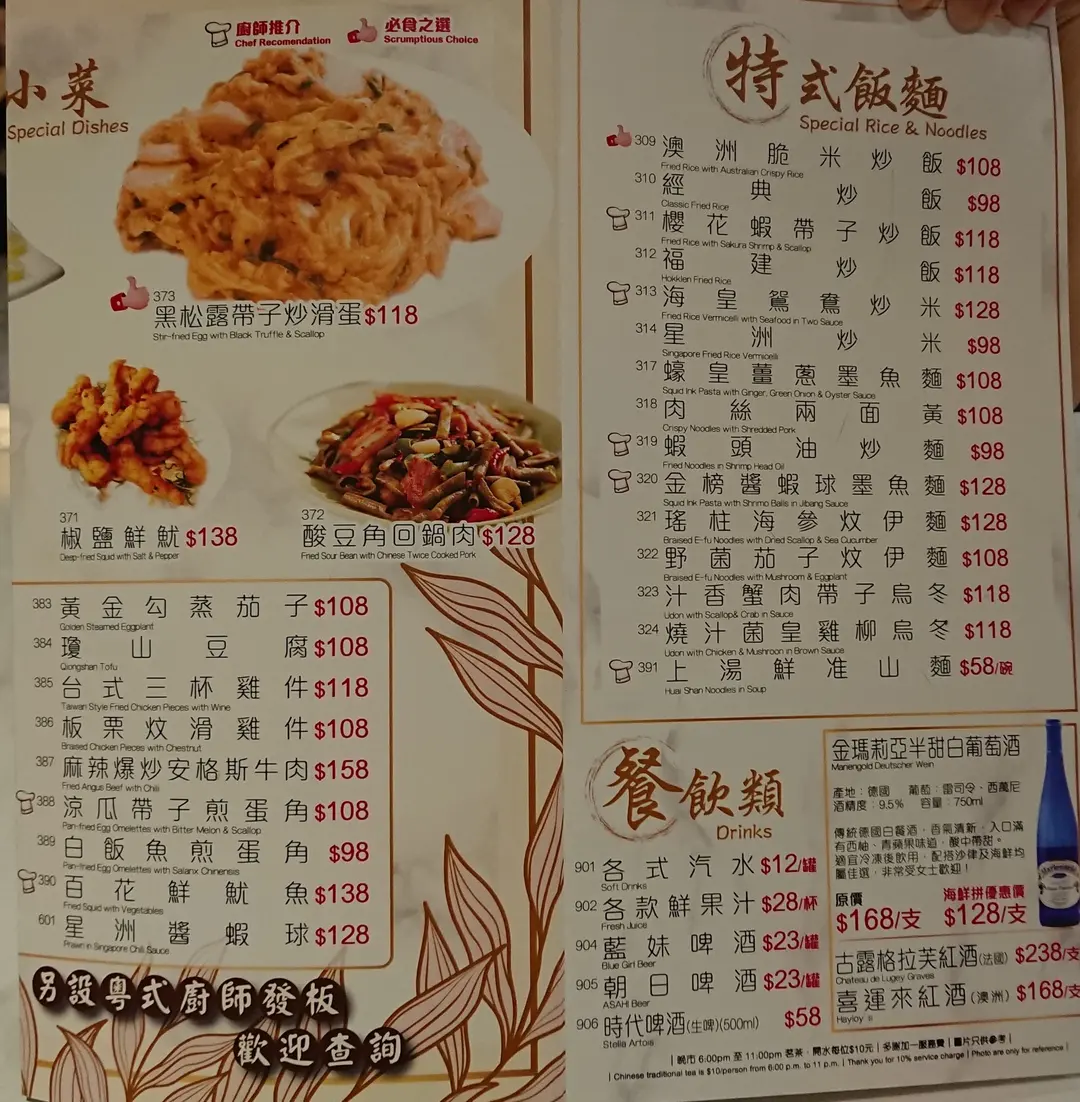 廚師推介
Chef Recomendation
必食之選
Scrumptious Choice
小菜
Special Dishes
373
黑松露帶子炒滑蛋$118
Stir-fried Egg with Black Truffle & Scallop
371
椒鹽鮮魷$138
Deep-fried Squid with Salt & Pepper
372
酸豆角回鍋肉$128
Fried Sour Bean with Chinese Twice Cooked Pork
383 黃金勾蒸茄子$108
Golden Steamed Eggplant
384 瓊山豆腐$108
Qiongshan Tofu
385 台式三杯雞件$118
Taiwan Style Fried Chicken Pieces with Wine
386 板栗炆滑雞件$108
Braised Chicken Pieces with Chestnut
387 麻辣爆炒安格斯牛肉$158
Fried Angus Beef with Chili
388 涼瓜帶子煎蛋角$108
Pan-fried Egg Omelettes with Bitter Melon & Scallop
389 白飯魚煎蛋角$98
Pan-fried Egg Omelettes with Salanx Chinensis
390 百花鮮魷魚$138
Fried Squid with Vegetables
601 星洲醬蝦球$128
Prawn in Singapore Chili Sauce
另設粵式廚師發板
歡迎查詢
特式飯麵
Special Rice & Noodles
309 澳洲脆米炒飯 $108
Fried Rice with Australian Crispy Rice
310 經典炒飯 $98
Classic Fried Rice
311 櫻花蝦帶子炒飯 $118
Fried Rice with Sakura Shrimp & Scallop
312 福建炒飯 $118
Hokkien Fried Rice
313 海皇鴛鴦炒米 $128
Fried Rice Vermicelli with Seafood in Two Sauce
314 星洲炒米 $98
Singapore Fried Rice Vermicelli
317 蠔皇薑蔥墨魚麵 $108
Squid Ink Pasta with Ginger, Green Onion & Oyster Sauce
318 肉絲兩面黃 $108
Crispy Noodles with Shredded Pork
319 蝦頭油炒麵 $98
Fried Noodles in Shrimp Head Oil
320 金榜醬蝦球墨魚麵 $128
Squid Ink Pasta with Shrimp Balls in Jibang Sauce
321 瑤柱海參炆伊麵 $128
Braised E-fu Noodles with Dried Scallop & Sea Cucumber
322 野菌茄子炆伊麵 $108
Braised E-fu Noodles with Mushroom & Eggplant
323 汁香蟹肉帶子烏冬 $118
Udon with Scallop& Crab in Sauce
324 燒汁菌皇雞柳烏冬 $118
Udon with Chicken & Mushroon in Brown Sauce
391 上湯鮮准山麵 $58/碗
Huai Shan Noodles in Soup
餐飲類
Drinks
901 各式汽水 $12/罐
Soft Drinks
902 各款鮮果汁 $28/杯
Fresh Juice
904 藍妹啤酒 $23/罐
Blue Girl Beer
905 朝日啤酒 $23/罐
ASAHI Beer
906 時代啤酒(生啤)(500ml) $58
Stella Artois
金瑪莉亞半甜白葡萄酒
Mariengold Deutscher Wein
產地：德國 葡萄：雷司令、西萬尼
酒精度：9.5% 容量：750ml
傳統德國白餐酒，香氣清新，入口滿
有西柚、青蘋果味道，酸中帶甜。
適宜冷凍後飲用，配搭沙律及海鮮均
屬佳選，非常受女士歡迎！
原價 海鮮拼優惠價
$168/支 $128/支
古露格拉芙紅酒(法國) $238/支
Chateau de Lugey Graves
喜運來紅酒(澳洲) $168/支
Hayloy II
| 晚市 6:00pm 至 11:00pm 茗茶、開水每位$10元 | 多謝加一服務費 | 圖片只供參考 |
| Chinese traditional tea is $10/person from 6:00 p.m. to 11 p.m. | Thank you for 10% service charge | Photo are only for reference |